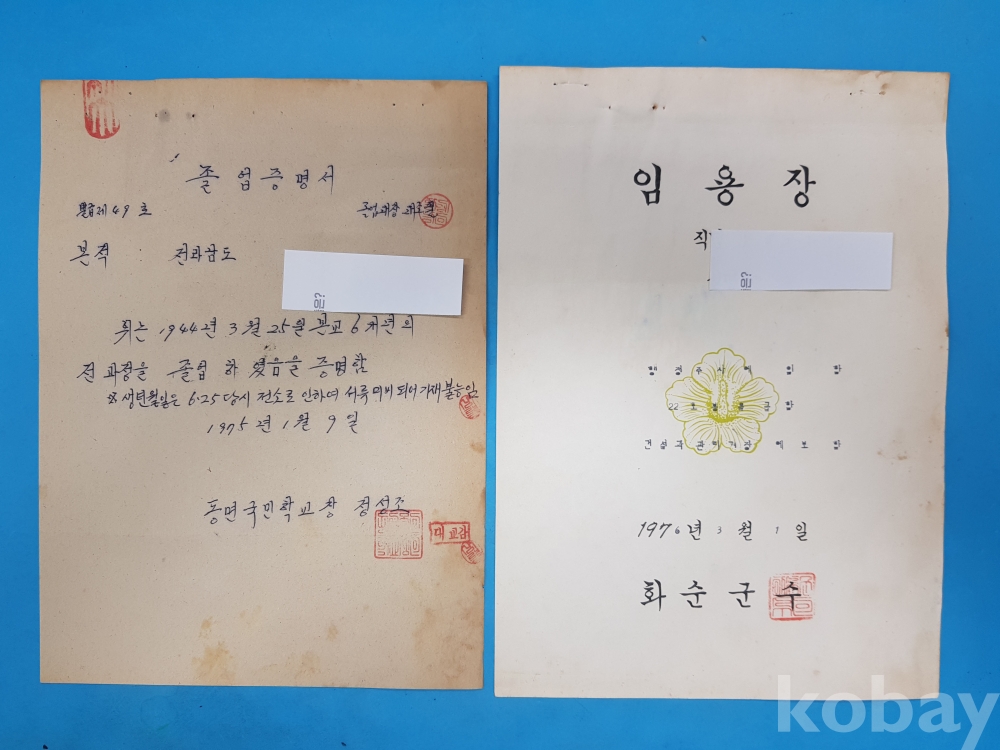 졸업증명서
제 49 호
본적 : 전라남도
위는 1944년 3월 25일 본교 6개년의
전과정을 졸업 하였음을 증명함
※생년월일은 6·25 당시 전소로 인하여 서류 미비 되어 기재불능임
1975년 1월 9일
동면국민학교장 정성조
대 교감
임용장
직
은?
은?
행정주사에 임함
22호봉을 급함
건설과 관리계장에 보함
1976년 3월 1일
화순군수
kobay